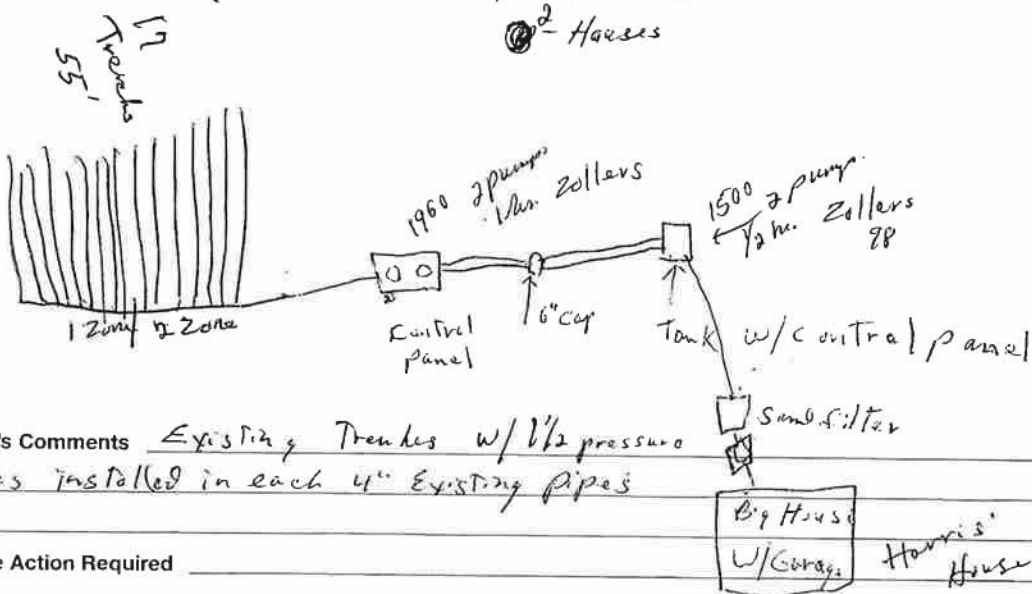 2 - Houses
17
Trenchs
55'
1960 2 pumps
Zollers
1500 2 pump.
1/2 hr. Zollers
98
1 Zone 2 Zone
Control
panel
6" cap
Tank w/ Control panel
Sand filter
's Comments Existing Trenches w/ 1 1/2 pressure
s installed in each 4" Existing Pipes
Big House
W/Garage
Harris'
House
e Action Required